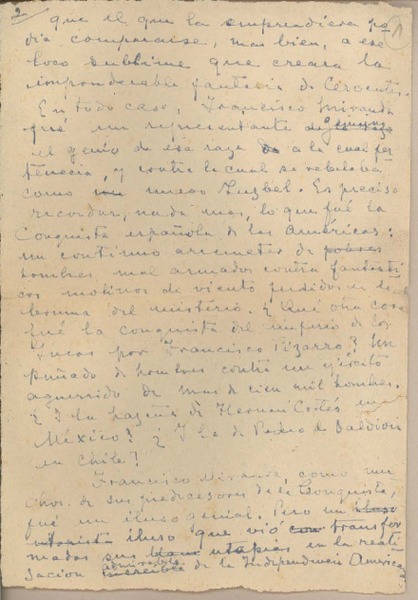 2
1
que el que la emprendiera po-
día compararse, mas bien, a ese
loco sublime que creara la
imponderable fantasía de Cervantes.
En todo caso, Francisco Miranda
fué un representante genuino
el genio de esa raza a la cual per-
tenecía, y contra la cual se rebelaba
como nuevo Luzbel. Es preciso
recordar, nada mas, lo que fué la
Conquista española de las Américas:
un continuo arremeter de pobres
hombres mal armados contra fantásti-
cos molinos de viento perdidos en la
bruma del misterio. ¿Qué otra cosa
fué la conquista del imperio de los
Incas por Francisco Pizarro? Un
puñado de hombres contra un ejército
aguerrido de mas de cien mil hombres.
¿Y la hazaña de Hernán Cortés en
México? ¿Y la de Pedro de Valdivia
en Chile?
Francisco Miranda, como mu-
chos de sus predecesores de la Conquista,
fué un iluso genial. Pero un iluso
iluso que vió transfor-
madas sus utopias en la reali-
zacion admirable increible de la Independencia Americana